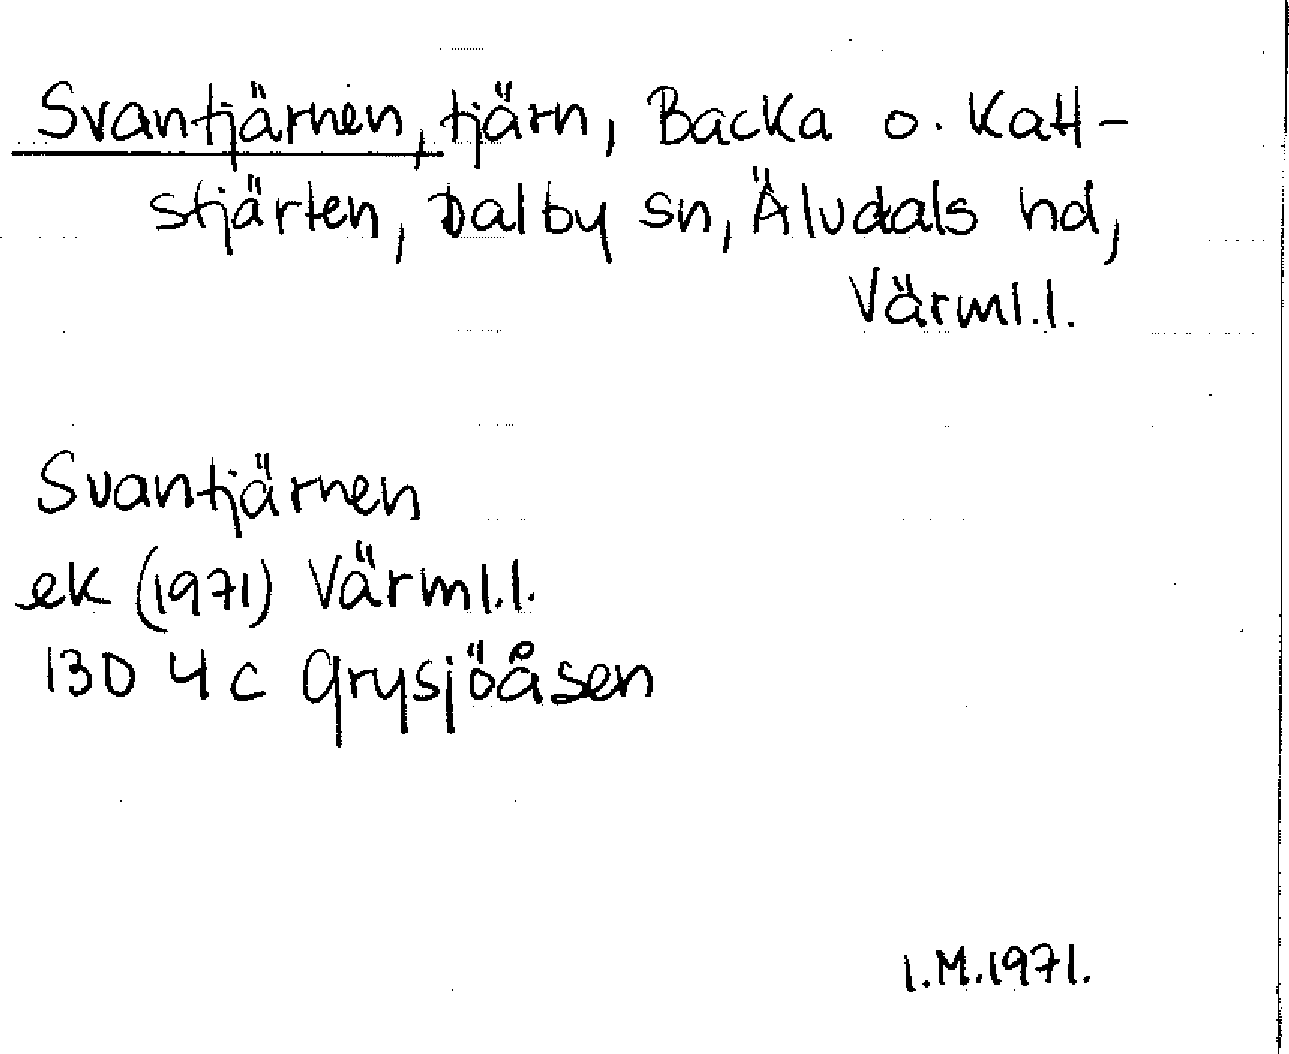 Svantjärnen, tjärn, Backa o. Katt-
stjärten, Dalby sn, Älvdals hd,
Värml.l.
Svantjärnen
ek (1971) Värml.l.
13D 4c Grysjöåsen
I.M.1971.